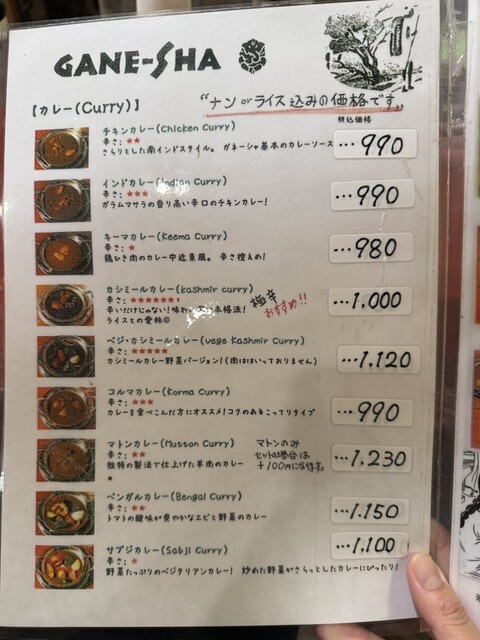 GANE-SHA
【カレー(Curry)】
"ナン or ライス込みの価格です"
税込価格
チキンカレー(Chicken Curry)
辛さ: ★★
さらりとした南インドスタイル。 ガネーシャ基本のカレーソース
…990
インドカレー(Indian Curry)
辛さ: ★★★
ガラムマサラの香り高い辛口のチキンカレー!
…990
キーマカレー(Keema Curry)
辛さ: ★
鶏ひき肉のカレー中近東風。 辛さ控えめ!
…980
カシミールカレー(kashmir curry)
辛さ: ★★★★★★
辛いだけじゃない!味わ 本格派!
ライスとの愛称◎
極辛
おすすめ!!
…1,000
ベジ・カシミールカレー(vege Kashmir Curry)
辛さ: ★★★★★
カシミールカレー野菜バージョン!(肉ははいっておりません)
…1,120
コルマカレー(Korma Curry)
辛さ: ★★★
カレーを食べこんだ方にオススメ!コクのあるこってりタイプ
…990
マトンカレー(Mutton Curry)
辛さ: ★★
独特の製法で仕上げた羊肉のカレー
★
マトンのみ
セットの場合は
+100円になります。
…1,230
ベンガルカレー(Bengal Curry)
辛さ: ★★
トマトの酸味が爽やかなエビと野菜のカレー
…1,150
サブジカレー(Sabji Curry)
辛さ: ★
野菜たっぷりのベジタリアンカレー! 炒めた野菜がさらっとしたカレーにぴったり!
…1,100